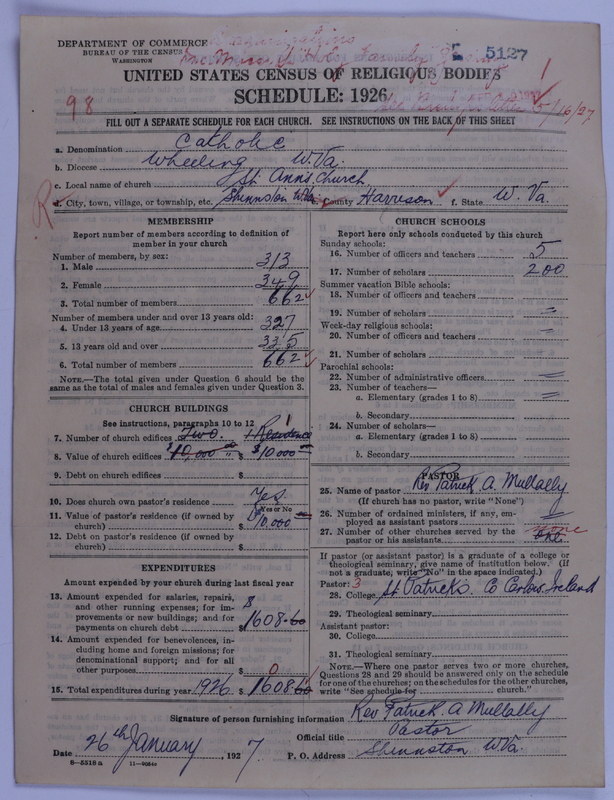 DEPARTMENT OF COMMERCE
BUREAU OF THE CENSUS
WASHINGTON
5127
UNITED STATES CENSUS OF RELIGIOUS BODIES
SCHEDULE: 1926
98
5/16/27
FILL OUT A SEPARATE SCHEDULE FOR EACH CHURCH. SEE INSTRUCTIONS ON THE BACK OF THIS SHEET
a. Denomination Catholic
b. Diocese Wheeling W.Va.
c. Local name of church St Ann's Church
d. City, town, village, or township, etc. Shinnston W.Va. e. County Harrison f. State W. Va.
R
MEMBERSHIP
Report number of members according to definition of
member in your church
Number of members, by sex:
1. Male 313
2. Female 349
3. Total number of members 662
Number of members under and over 13 years old:
4. Under 13 years of age 327
5. 13 years old and over 335
6. Total number of members 662
NOTE.—The total given under Question 6 should be the
same as the total of males and females given under Question 3.
CHURCH BUILDINGS
See instructions, paragraphs 10 to 12
7. Number of church edifices Two. 1 Residence
8. Value of church edifices $10,000 $ $10000
9. Debt on church edifices $
10. Does church own pastor's residence Yes
Yes or No
11. Value of pastor's residence (if owned by
church) $10,000
12. Debt on pastor's residence (if owned by
church) $
EXPENDITURES
Amount expended by your church during last fiscal year
13. Amount expended for salaries, repairs,
and other running expenses; for im-
provements or new buildings; and for
payments on church debt $1608.60
14. Amount expended for benevolences, in-
cluding home and foreign missions; for
denominational support; and for all
other purposes $ 0
15. Total expenditures during year 1926 $ 1608.60
CHURCH SCHOOLS
Report here only schools conducted by this church
Sunday schools:
16. Number of officers and teachers 5
17. Number of scholars 200
Summer vacation Bible schools:
18. Number of officers and teachers
19. Number of scholars
Week-day religious schools:
20. Number of officers and teachers
21. Number of scholars
Parochial schools:
22. Number of administrative officers
23. Number of teachers—
a. Elementary (grades 1 to 8)
b. Secondary
24. Number of scholars—
a. Elementary (grades 1 to 8)
b. Secondary
PASTOR
25. Name of pastor Rev Patrick A Mullally
(If church has no pastor, write "None")
26. Number of ordained ministers, if any, em-
ployed as assistant pastors
27. Number of other churches served by the none
pastor or his assistants one.
If pastor (or assistant pastor) is a graduate of a college or
theological seminary, give name of institution below. (If
not a graduate, write "No" in the space indicated.)
Pastor: 3
28. College St Patrick's. Co Carlow. Ireland
29. Theological seminary
Assistant pastor:
30. College
31. Theological seminary
NOTE.—Where one pastor serves two or more churches,
Questions 28 and 29 should be answered only on the schedule
for one of the churches; on the schedules for the other churches,
write "See schedule for church."
Signature of person furnishing information Rev Patrick A Mullally
Official title Pastor
Date 26th January, 1927 P. O. Address Shinnston W.Va.
8-5518a 11-9024a